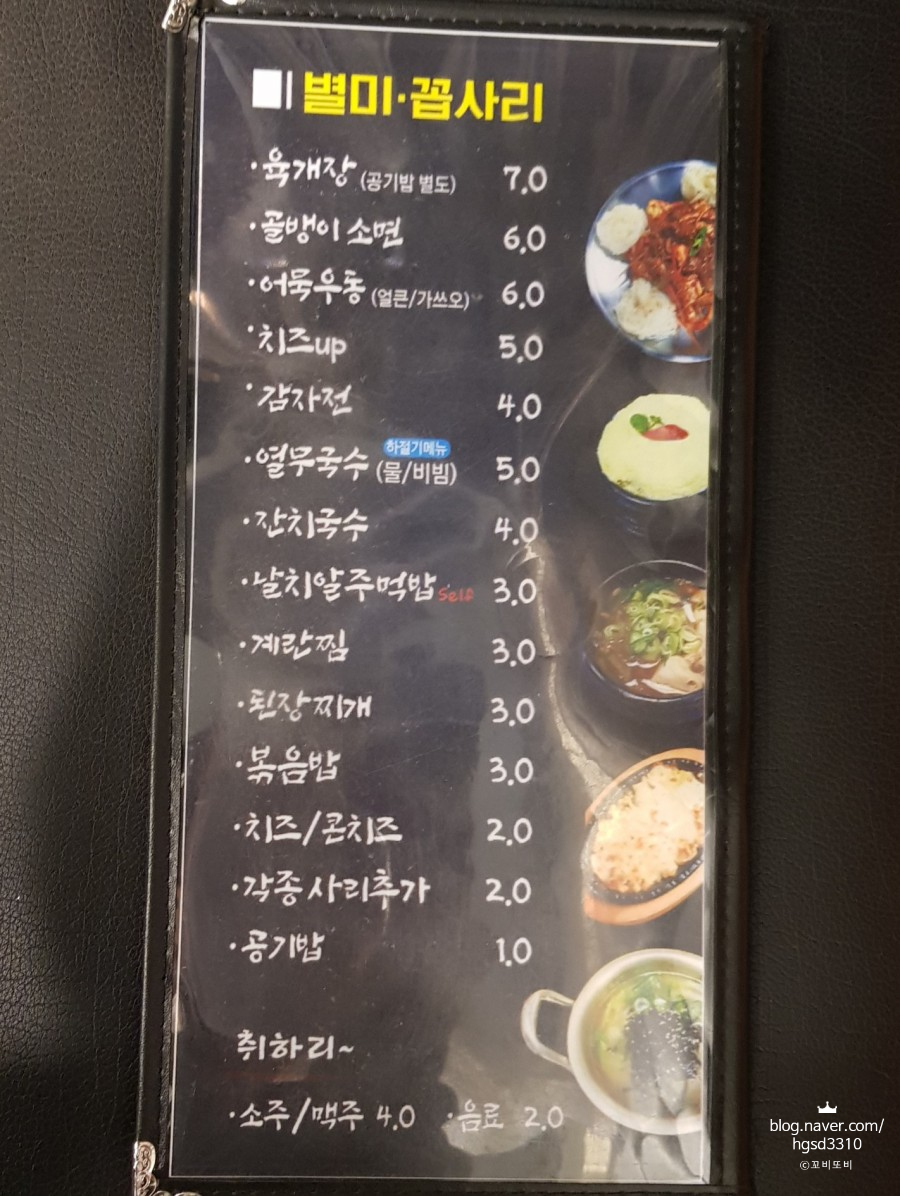 별미·꼽사리
·육개장 (공기밥 별도) 7.0
·골뱅이 소면 6.0
·어묵우동 (얼큰/가쓰오) 6.0
·치즈up 5.0
·감자전 4.0
하절기메뉴
·열무국수 (물/비빔) 5.0
·잔치국수 4.0
·날치알주먹밥 self 3.0
·계란찜 3.0
·된장찌개 3.0
·볶음밥 3.0
·치즈/콘치즈 2.0
·각종 사리추가 2.0
·공기밥 1.0
취하리~
·소주/맥주 4.0 ·음료 2.0
blog.naver.com/
hgsd3310
©꼬비또비